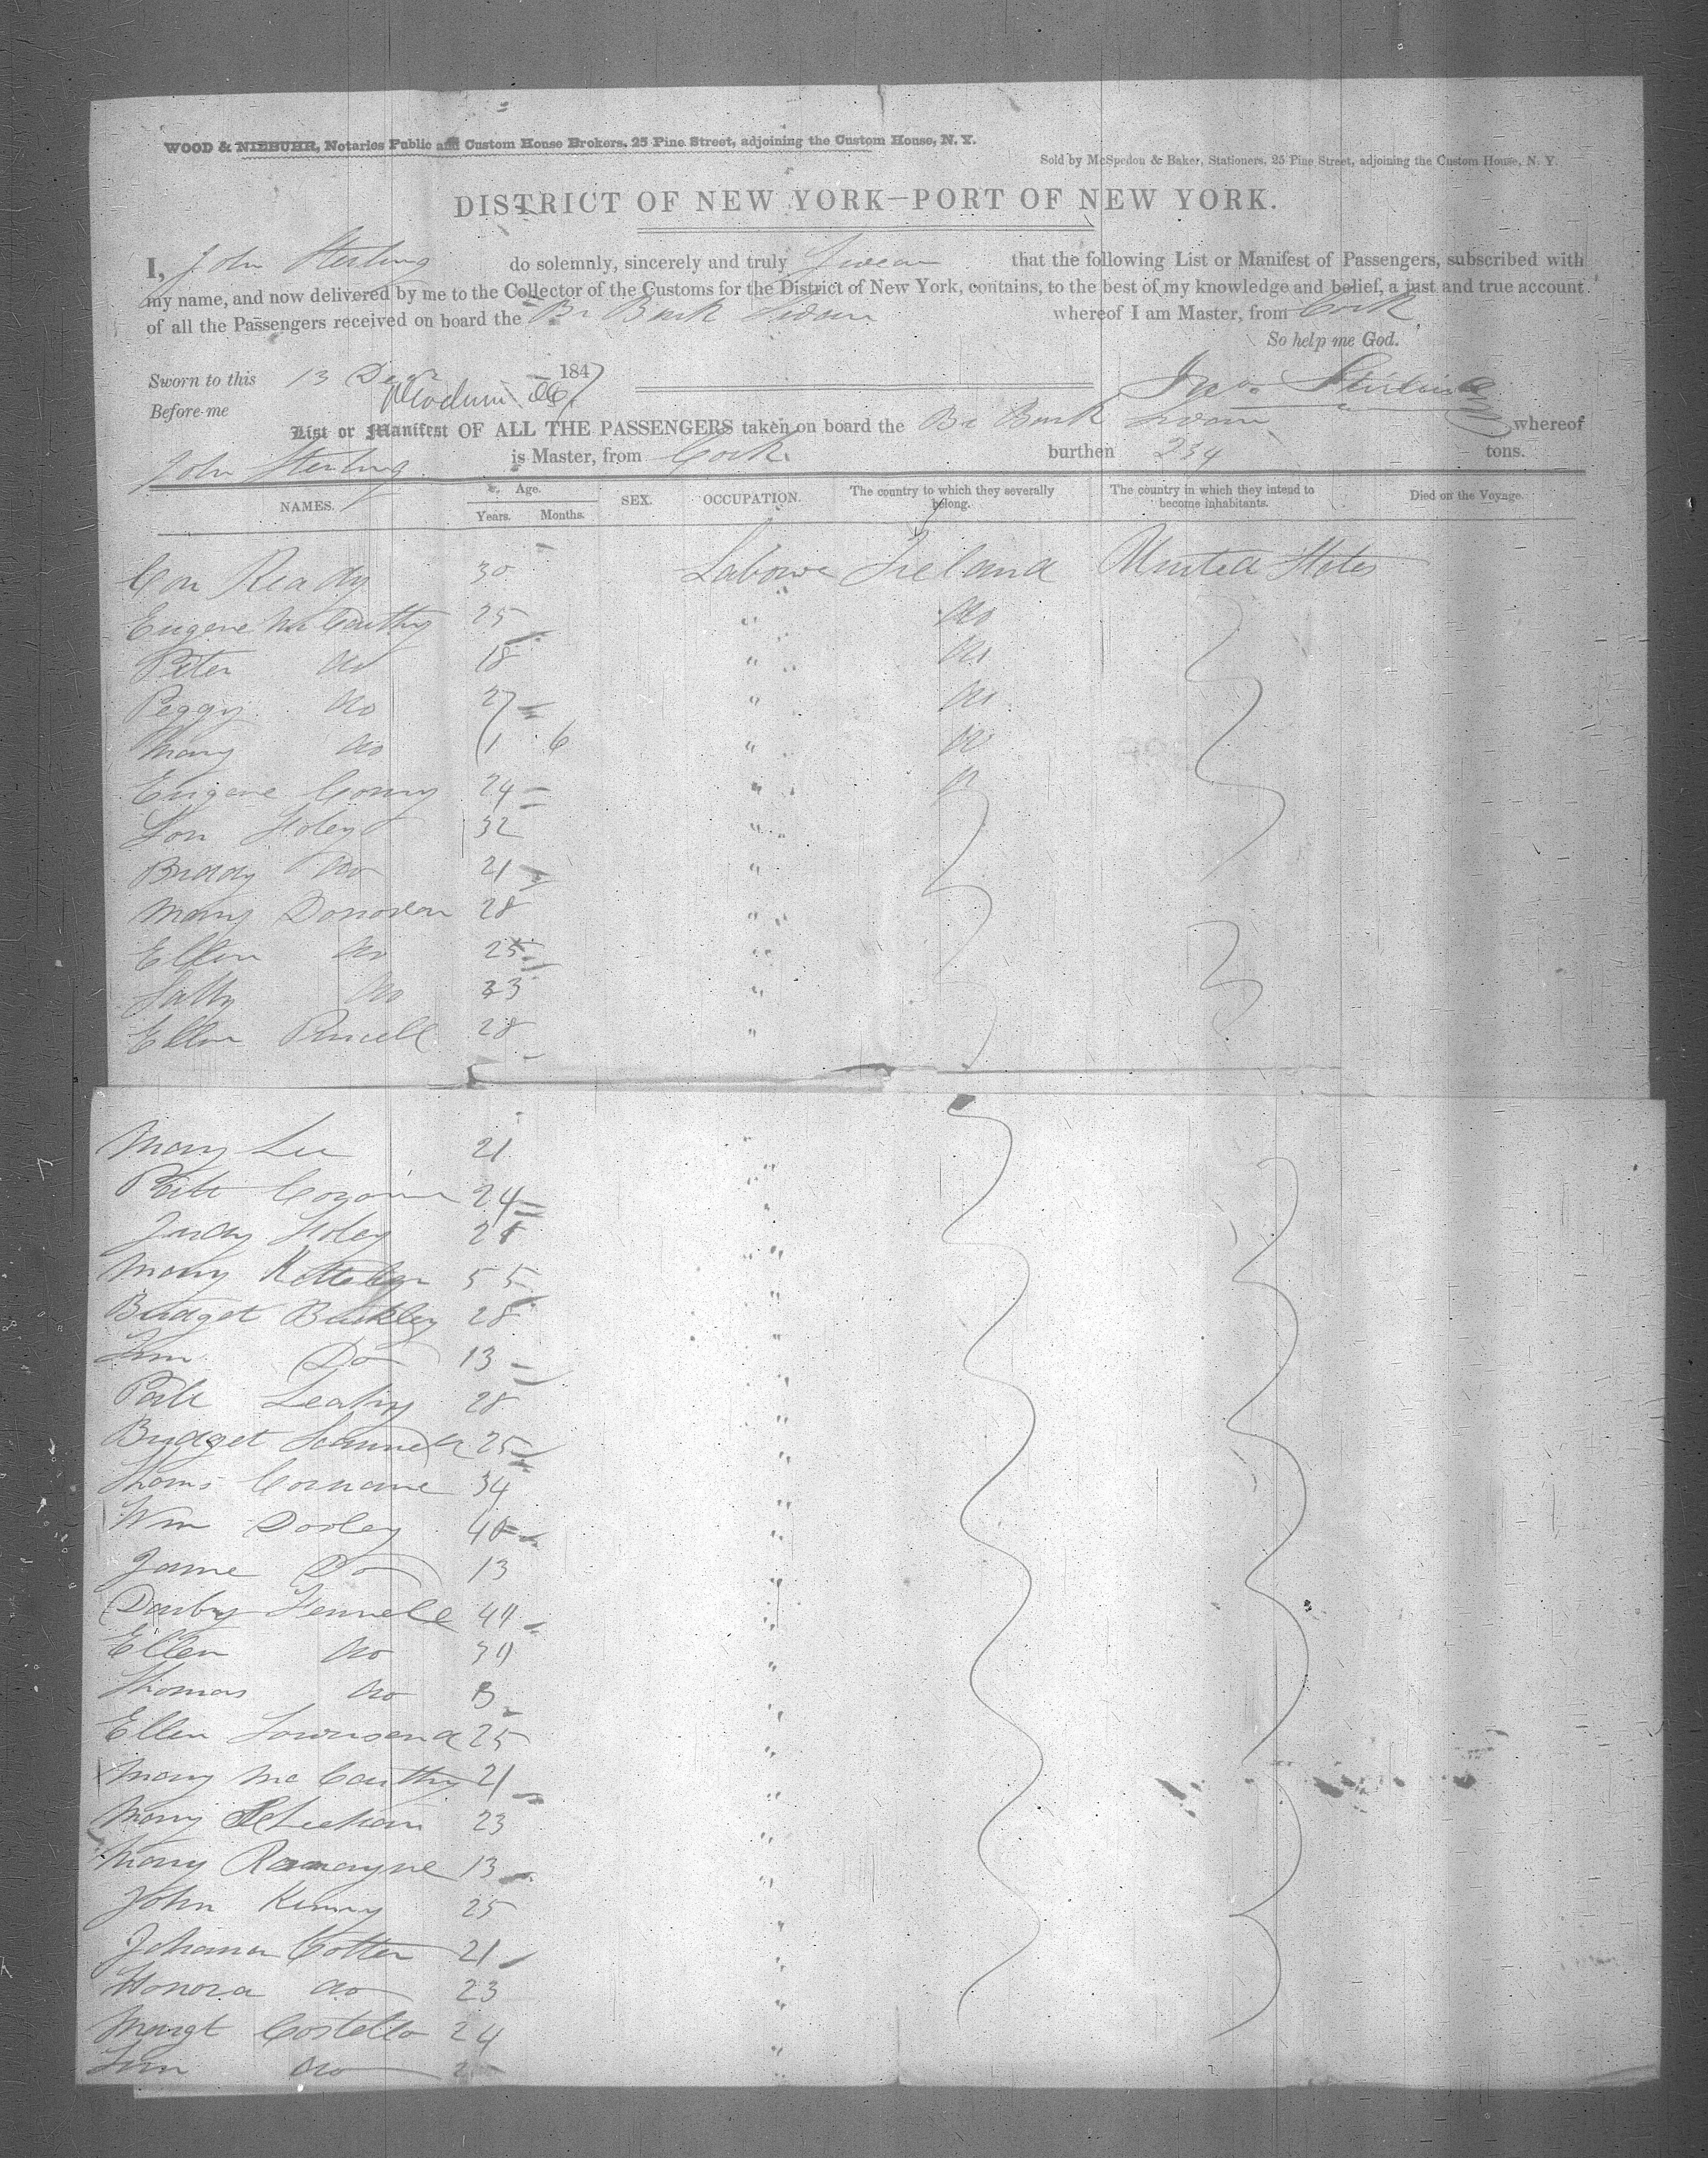 WOOD & NIEBUHR, Notaries Public and Custom House Brokers. 25 Pine Street, adjoining the Custom House, N. Y.
Sold by McSpedon & Baker, Stationers, 25 Pine Street, adjoining the Custom House, N. Y.
DISTRICT OF NEW YORK—PORT OF NEW YORK.
I, John Sterling do solemnly, sincerely and truly Swear that the following List or Manifest of Passengers, subscribed with
my name, and now delivered by me to the Collector of the Customs for the District of New York, contains, to the best of my knowledge and belief, a just and true account
of all the Passengers received on board the Br Bark whereof I am Master, from Cork
So help me God.
Sworn to this 13 Decr 1847
Before me
List or Manifest OF ALL THE PASSENGERS taken on board the Br Bark whereof
John Sterling is Master, from Cork burthen 234 tons.
NAMES. Age. Years. Months. SEX. OCCUPATION. The country to which they severally belong. The country in which they intend to become inhabitants. Died on the Voyage.
Con Ready 30 Labour Ireland United States
Eugene McCarthy 25 " do
Peter do 18 " do
Peggy do 27 " do
Mary do 1 6 " do
Eugene 24 "
Foley 32 "
Biddy do 21 "
Mary Donovan 28 "
Ellen do 25 "
do 23 "
Ellen Purcell 28 "
Mary Lee 21 "
Patt 24 "
Judy Foley "
Mary 55 "
Bridget Buckley 28 "
Do 13 "
Patt Leahy 28 "
Bridget Scannell 25 "
Thoms 34 "
Wm Dooley 40 "
Jame Do 13 "
Darby Fennell 44 "
Ellen do "
Thomas do "
Ellen Townsend 25 "
Mary McCarthy 21 "
Mary Sheehan 23 "
Mary 13 "
John Kenny 25 "
Johana Cotter 21 "
Honora do 23 "
Margt Costello 24 "
do "